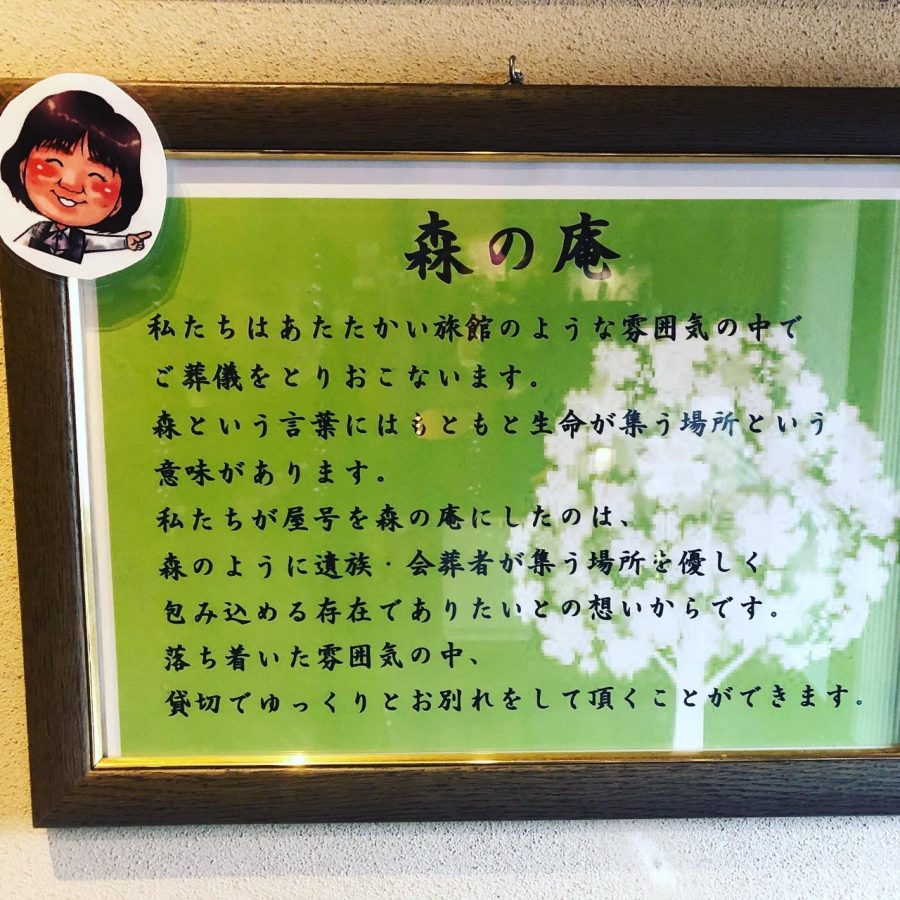 森の庵
私たちはあたたかい旅館のような雰囲気の中で
ご葬儀をとりおこないます。
森という言葉にはもともと生命が集う場所という
意味があります。
私たちが屋号を森の庵にしたのは、
森のように遺族・会葬者が集う場所を優しく
包み込める存在でありたいとの想いからです。
落ち着いた雰囲気の中、
貸切でゆっくりとお別れをして頂くことができます。